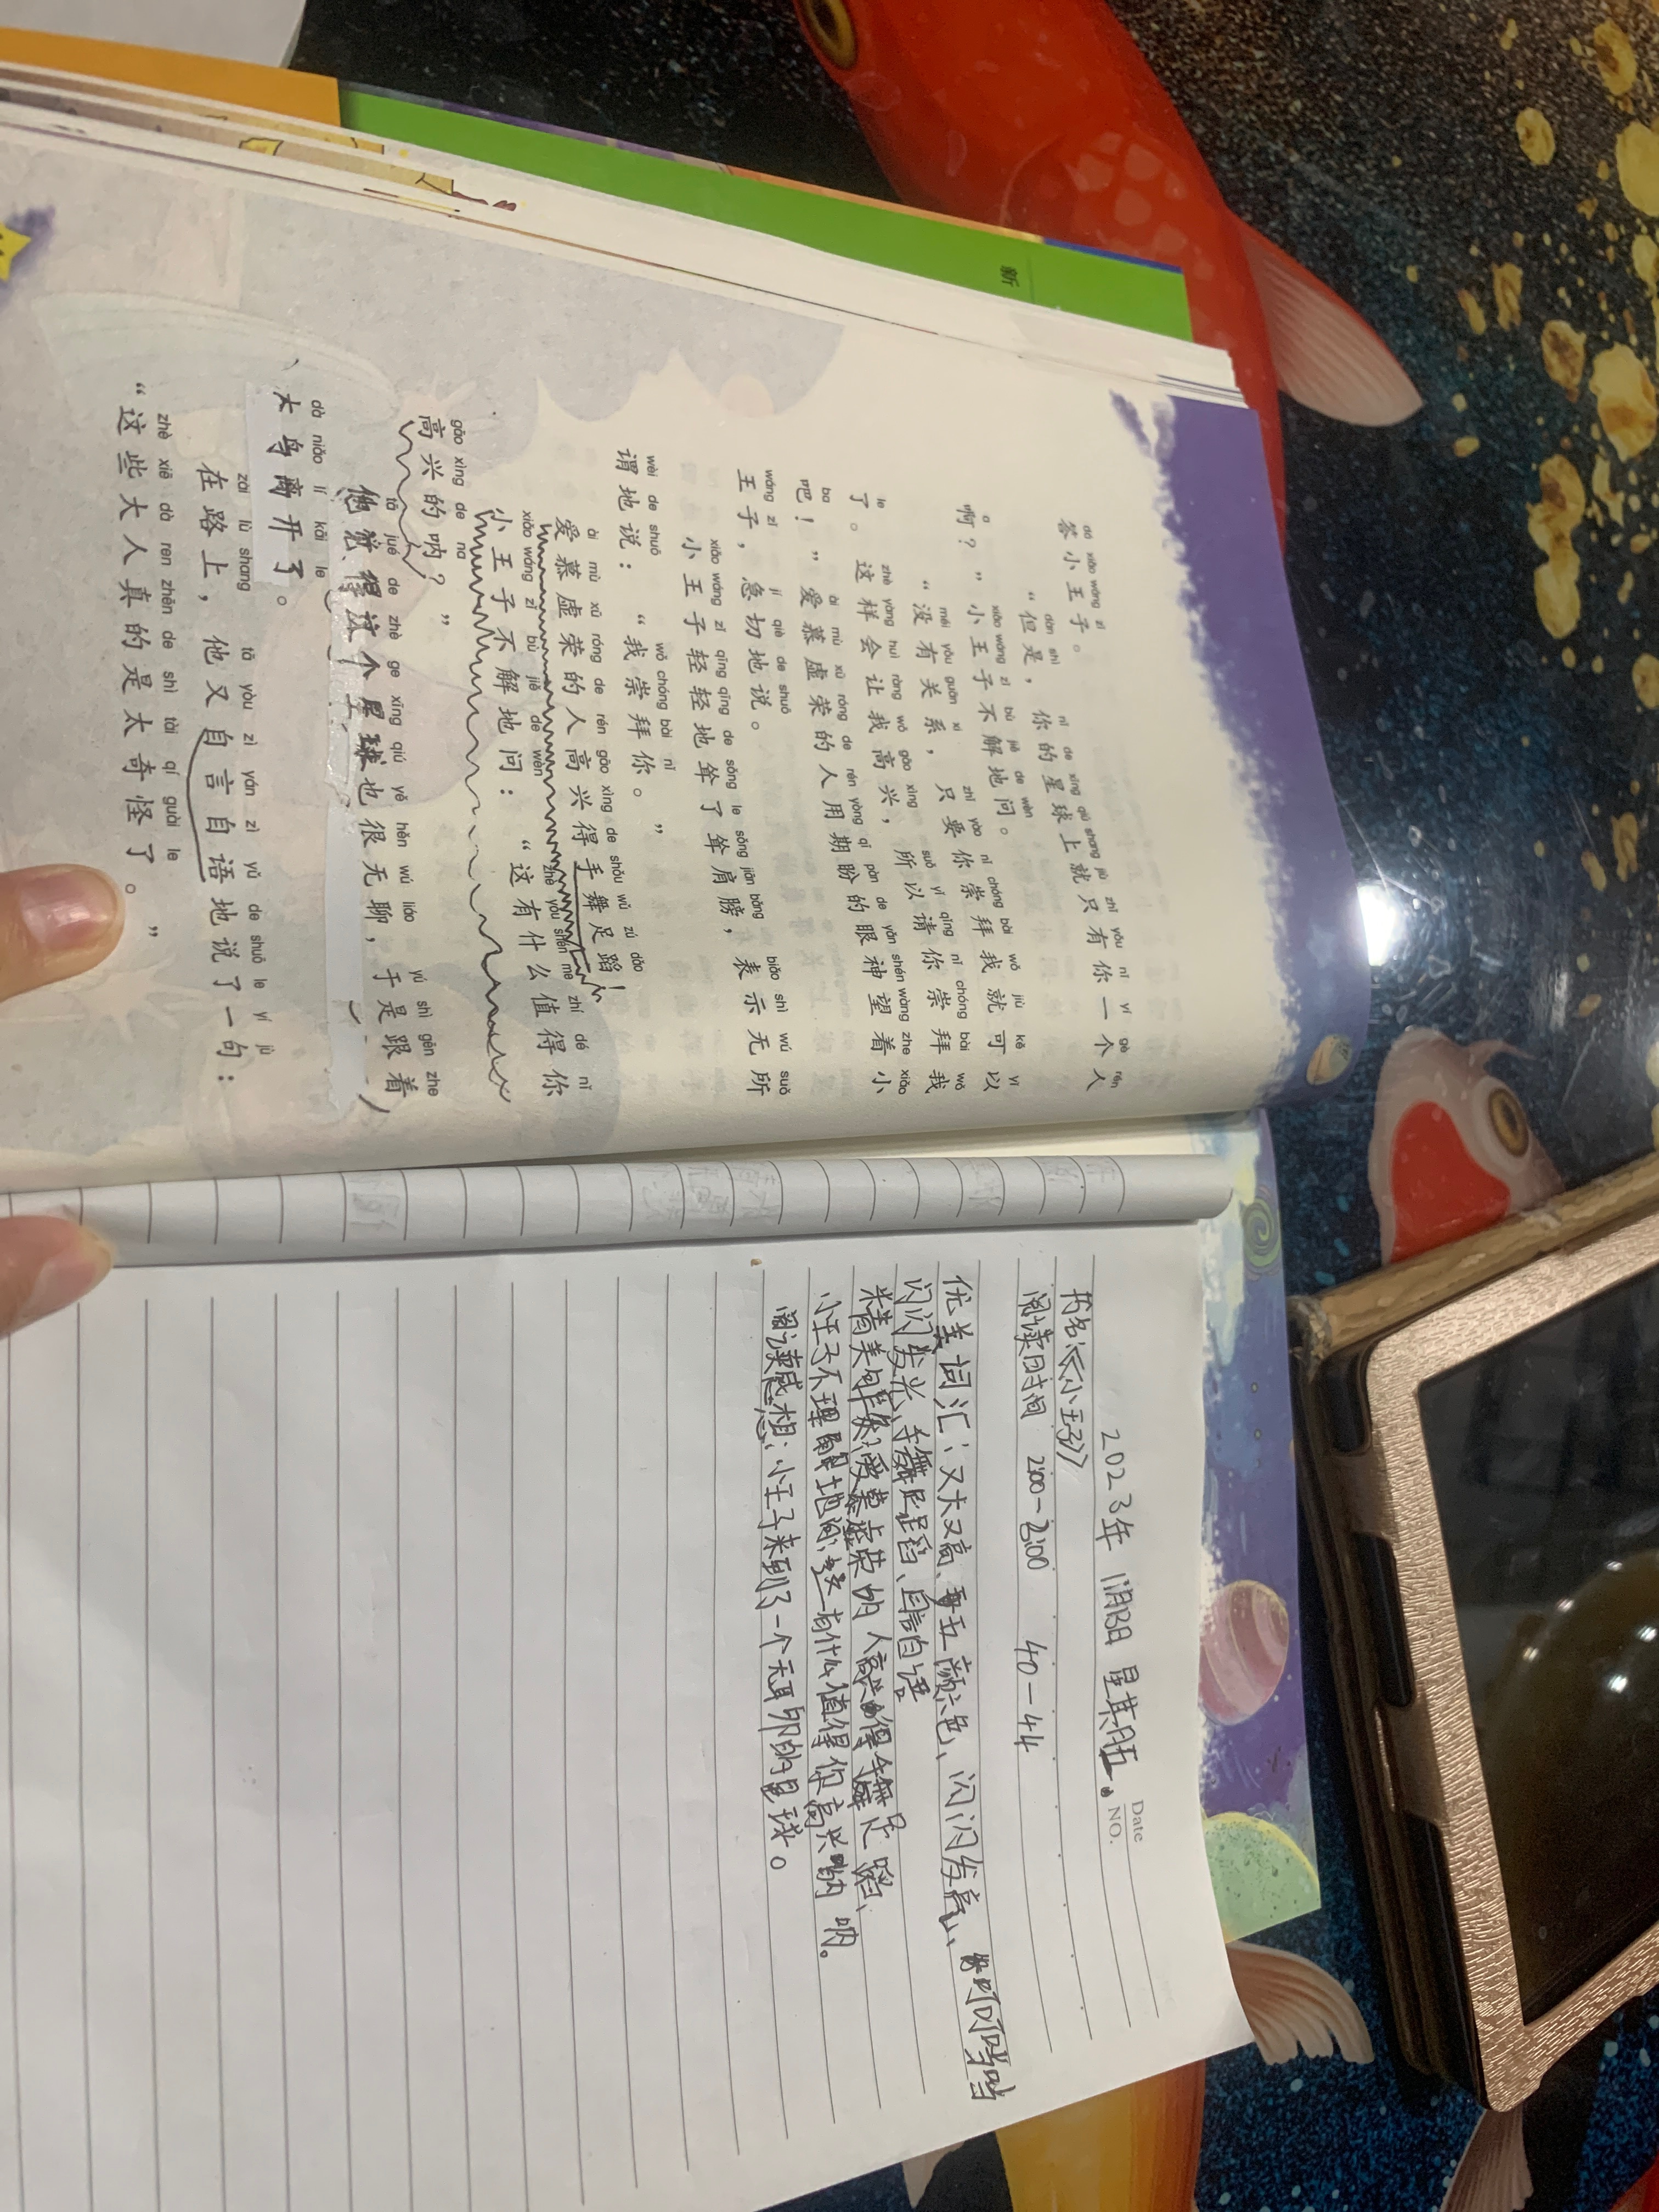 新
dá xiǎo wáng zǐ
答小王子。
dàn shì nǐ de xīng qiú shang jiù zhǐ yǒu nǐ yí gè rén
“但是，你的星球上就只有你一个人
a xiǎo wáng zǐ bù jiě de wèn
啊？”小王子不解地问。
méi yǒu guān xi zhǐ yào nǐ chóng bài wǒ jiù kě yǐ
“没有关系，只要你崇拜我就可以
le zhè yàng huì ràng wǒ gāo xìng suǒ yǐ qǐng nǐ chóng bài wǒ
了。这样会让我高兴，所以请你崇拜我
ba ài mù xū róng de rén yòng qī pàn de yǎn shén wàng zhe xiǎo
吧！”爱慕虚荣的人用期盼的眼神望着小
wáng zǐ jí qiè de shuō
王子，急切地说。
xiǎo wáng zǐ qīng qīng de sǒng le sǒng jiān bǎng biǎo shì wú suǒ
小王子轻轻地耸了耸肩膀，表示无所
wèi de shuō wǒ chóng bài nǐ
谓地说：“我崇拜你。”
ài mù xū róng de rén gāo xìng de shǒu wǔ zú dǎo
爱慕虚荣的人高兴得手舞足蹈！
xiǎo wáng zǐ bù jiě de wèn zhè yǒu shén me zhí dé nǐ
小王子不解地问：“这有什么值得你
gāo xìng de na
高兴的呐？”
tā jué de zhè ge xīng qiú yě hěn wú liáo yú shì gēn zhe
他觉得这个星球也很无聊，于是跟着
dà niǎo lí kāi le
大鸟离开了。
zài lù shang tā yòu zì yán zì yǔ de shuō le yí jù
在路上，他又自言自语地说了一句：
zhè xiē dà ren zhēn de shì tài qí guài le
“这些大人真的是太奇怪了。”
Date
NO.
2023年
书名:《小王子》
阅读时间 2:00-2:00 40-44
优美词汇：又大又高、五颜六色、闪闪发亮、叮叮当当
闪闪发光、手舞足蹈、自言自语
精美句矣：爱慕虚荣的人高兴得手舞足蹈、
小王子不理解地问：这有什么值得你高兴呐。
阅读感想：小王子来到了一个无聊的星球。